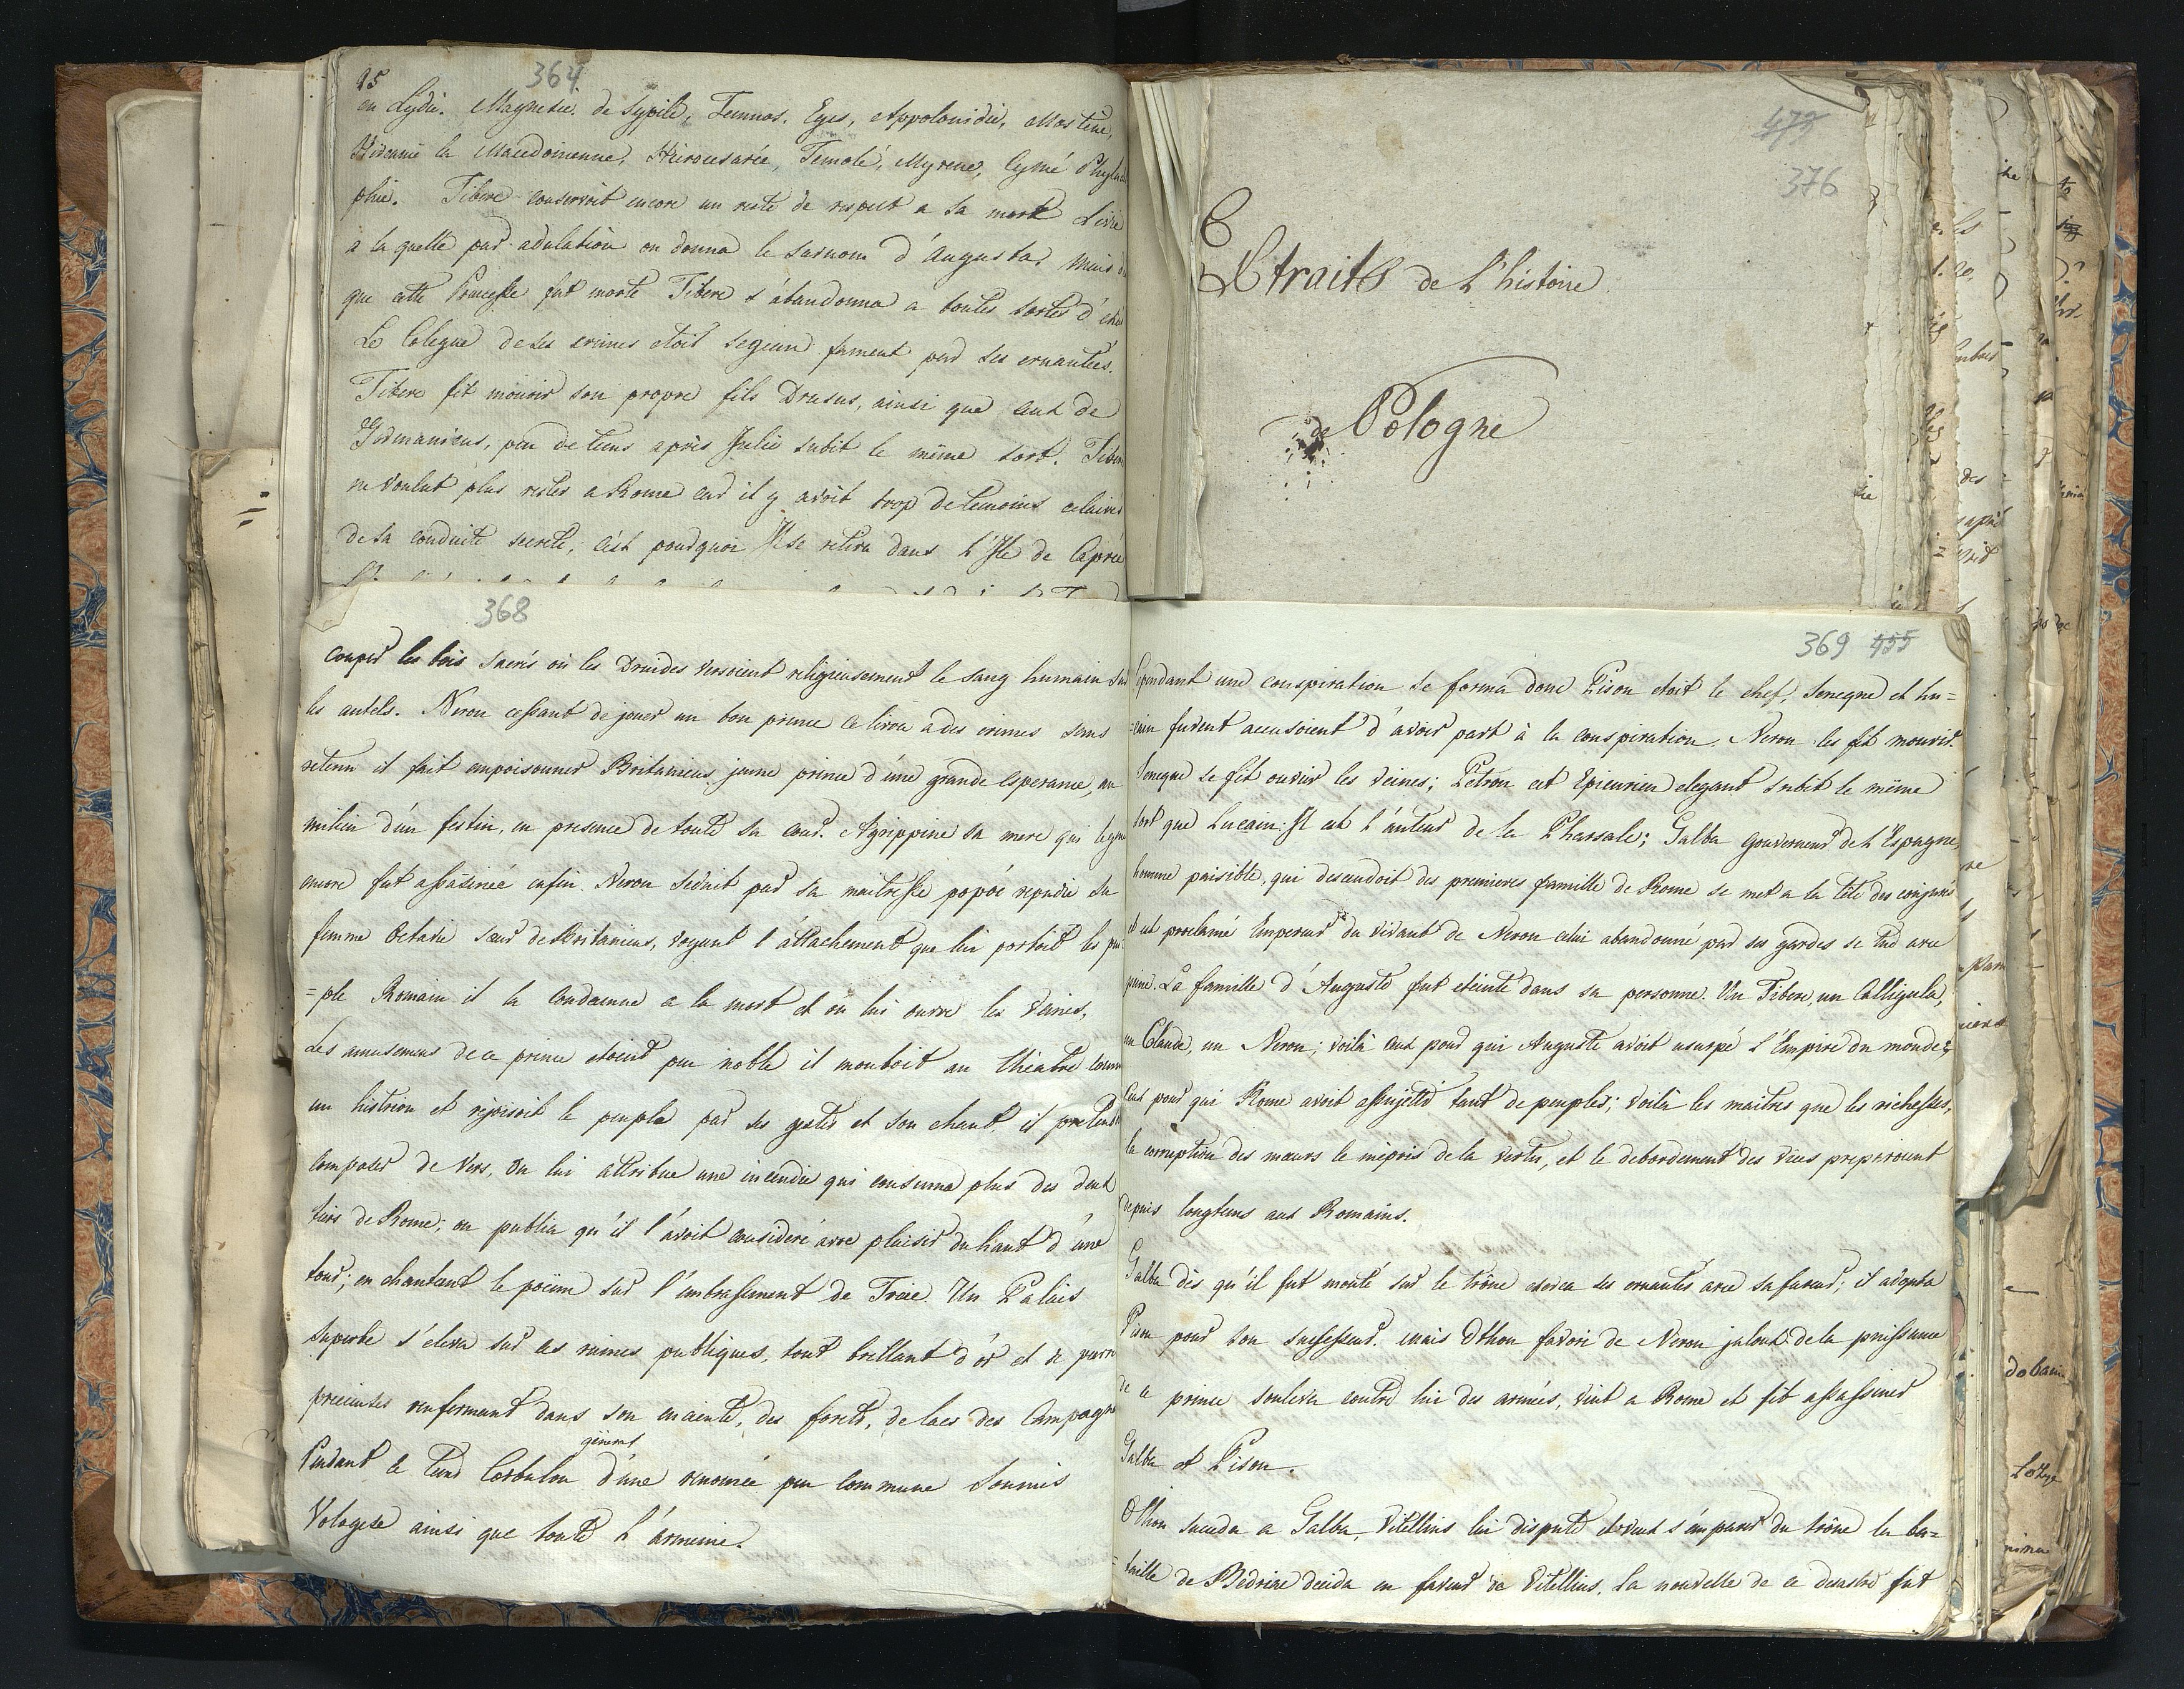 15
364
en Lydie. Magnesie de Sypile, Temnos, Eges, Appolonidie, Mostene,
Hircanie la Macedoinenne, Hierocesarée, Temole, Myrene, Cymé Phyla
phie. Tibere conservoit encore un reste de respect a sa mere Livie
a la quelle par adulation on donna le surnom d'Augusta, mais
que cette Princesse fut morte Tibere s'abandonna a toutes sortes d'
Le Colegue de ses crimes etoit Segean fameux par ses cruautées.
Tibere fit mourir son propre fils Drusus, ainsi que ceux de
Germanicus, peu de tems après Julie subit le même sort. Tibere
ne voulut plus rester a Rome car il y avoit trop de temoins
de sa conduite secrete; c'est pourquoi il se retira dans l'Ile de Caprée
479
376
Extraits de l'histoire
de Pologne
368
couper les bois sacrés où les Druides versoient religieusement le sang humain sur
les autels. Neron cessant de jouer un bon prince ce livra a des crimes sans
retenu il fait empoisonner Britanicus jeune prince d'une grande esperance, au
milieu d'un festin, en presence de toute sa cour. Agrippine sa mere qui
encore fut assasineé enfin. Neron seduit par sa maitresse popée repudie sa
femme Octavie sœur de Britanicus, voyant l'attachement que lui portoit le peu
=ple Romain il la condamne a la mort et on lui ouvre les vaines,
Les amusemens de ce prince etoient peu noble il montoit au theatre comm
un histrion et rejoisoit le peuple par ses gestes et son chant, il pretend
composer de vers, on lui attribue une incendie qui consuma plus des deux
tiers de Rome; on publia qu'il l'avoit consideré avec plaisir du haut d'une
tour; en chantant le poëme sur l'embrassement de Troie. Un Palais
superbe s'eleva sur ces ruines publiques, tout brillant d'or et de pierre
precieuses renfermant dans son enceinte, des forets, de lacs des Campagn
géneral
Pendant ce tems Corbulon d'une renomée peu commune soumis
Vologese ainsi que toute l'armenie.
369 455
Cependant une conspiration se forma donc Pison etoit le chef, Seneque et Lu=
=cain furent accusoient d'avoir part à la conspiration. Neron les fit mourir.
Seneque se fit ouvrir les veines; Petron cet Epicurien elegant subit le même
sort que Lucain. Il est l'auteur de la Pharsale; Galba gouverneur de l'Espagne,
homme paisible, qui descendoit des premieres famille de Rome se met a la tête des conjurés
et est proclamé Empereur du vivant de Neron celui abandonné par ses gardes se tue avec
peine. La famille d'Auguste fut eteinte dans sa personne. Un Tibere, un Calligula,
un Claude, un Neron; voilà ceux pour qui Auguste avoit usurpé l'Empire du monde;
Ceux pour qui Rome avoit assujetti tant de peuples; voilà les maitres que les richesses,
la corruption des mœurs le mépris de la vertu, et le debordement des vices preparoient
depuis longtems aux Romains.
Galba dès qu'il fut monté sur le trône exerca ses cruautés avec sa fureur; il adopta
Pison pour son successeur. mais Othon favori de Neron jaloux de la puissance
de ce prince souleva contre lui des armées, vint a Rome et fit assassiner
Galba et Pison.
Othon succeda a Galba, Vitellius lui dispute s'emparer du trône la ba=
=taille de Bedriac decida en faveur de Vitellius. La nouvelle de ce desastre fut